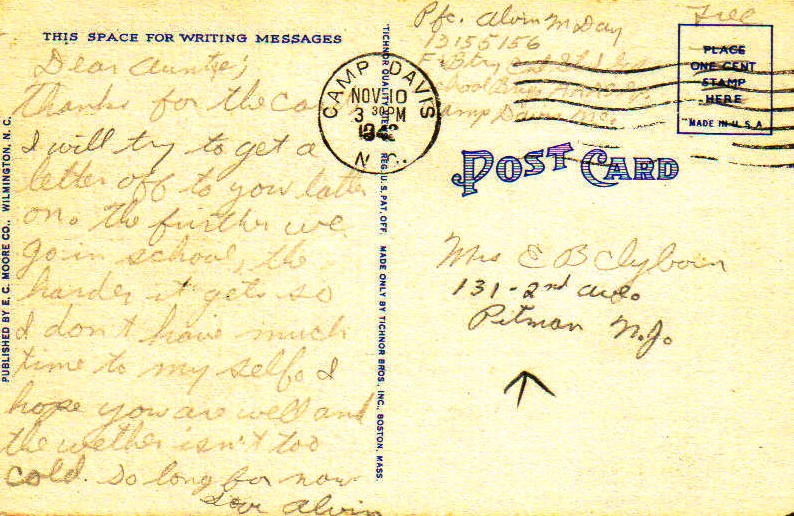 THIS SPACE FOR WRITING MESSAGES
Dear Auntie;
Thanks for the
I will try to get a
letter off to you latter
on. The further we
go in school, the
harder it gets so
I don't have much
time to my self. I
hope you are well and
the wether isn't too
cold. So long for now
Love Alvin
PUBLISHED BY E. C. MOORE CO., WILMINGTON, N. C.
TICHNOR QUALITY REG. U. S. PAT. OFF. MADE ONLY BY TICHNOR BROS., INC., BOSTON, MASS.
CAMP DAVIS
NOV 10
3 30 PM
1942
N. C.
Pfc. Alvin M Day
13155156
F. Btry
Camp Davis N.C.
Free
PLACE
ONE CENT
STAMP
HERE
MADE IN U.S.A.
POST CARD
Mrs E B Clyborn
131-2nd ave.
Pitman N.J.